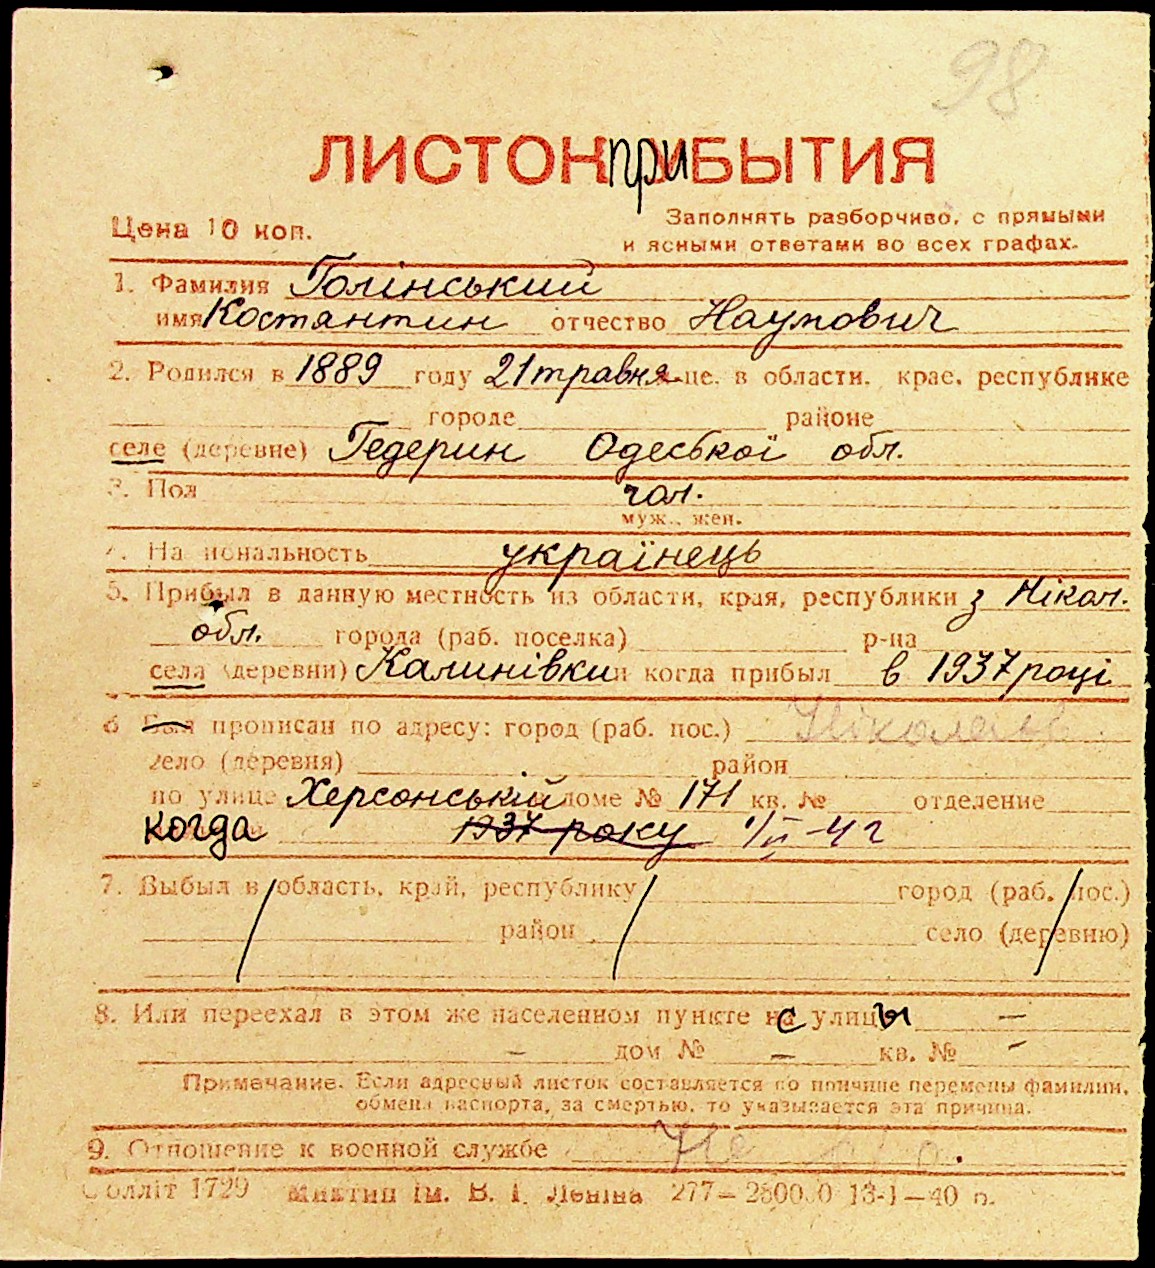 98
ЛИСТОК при БЫТИЯ
Цена 10 коп.
Заполнять разборчиво, с прямыми
и ясными ответами во всех графах.
1. Фамилия Голінський
имя Костянтин отчество Наумович
2. Родился в 1889 году 21 травня це. в области, крае, республике
городе районе
селе (деревне) Гедерин Одеської обл.
3. Пол чол.
муж., жен.
4. Национальность українець
5. Прибыл в данную местность из области, края, республики з Нікол.
обл. города (раб. поселка) р-на
села (деревни) Калинівки и когда прибыл в 1937 році
6 Был прописан по адресу: город (раб. пос.) Ніколаїв
село (деревня) район
по улице Херсонській доме № 171 кв. № отделение
когда 1937 року 1/II-41
7. Выбыл в область, край, республику город (раб. пос.)
район село (деревню)
8. Или переехал в этом же населенном пункте с улицы —
— дом № — кв. № —
Примечание. Если адресный листок составляется по причине перемены фамилии,
обмена паспорта, за смертью, то указывается эта причина.
9. Отношение к военной службе Не
Облліт 1729 ім. В. І. Леніна 277— 13-І—40 р.